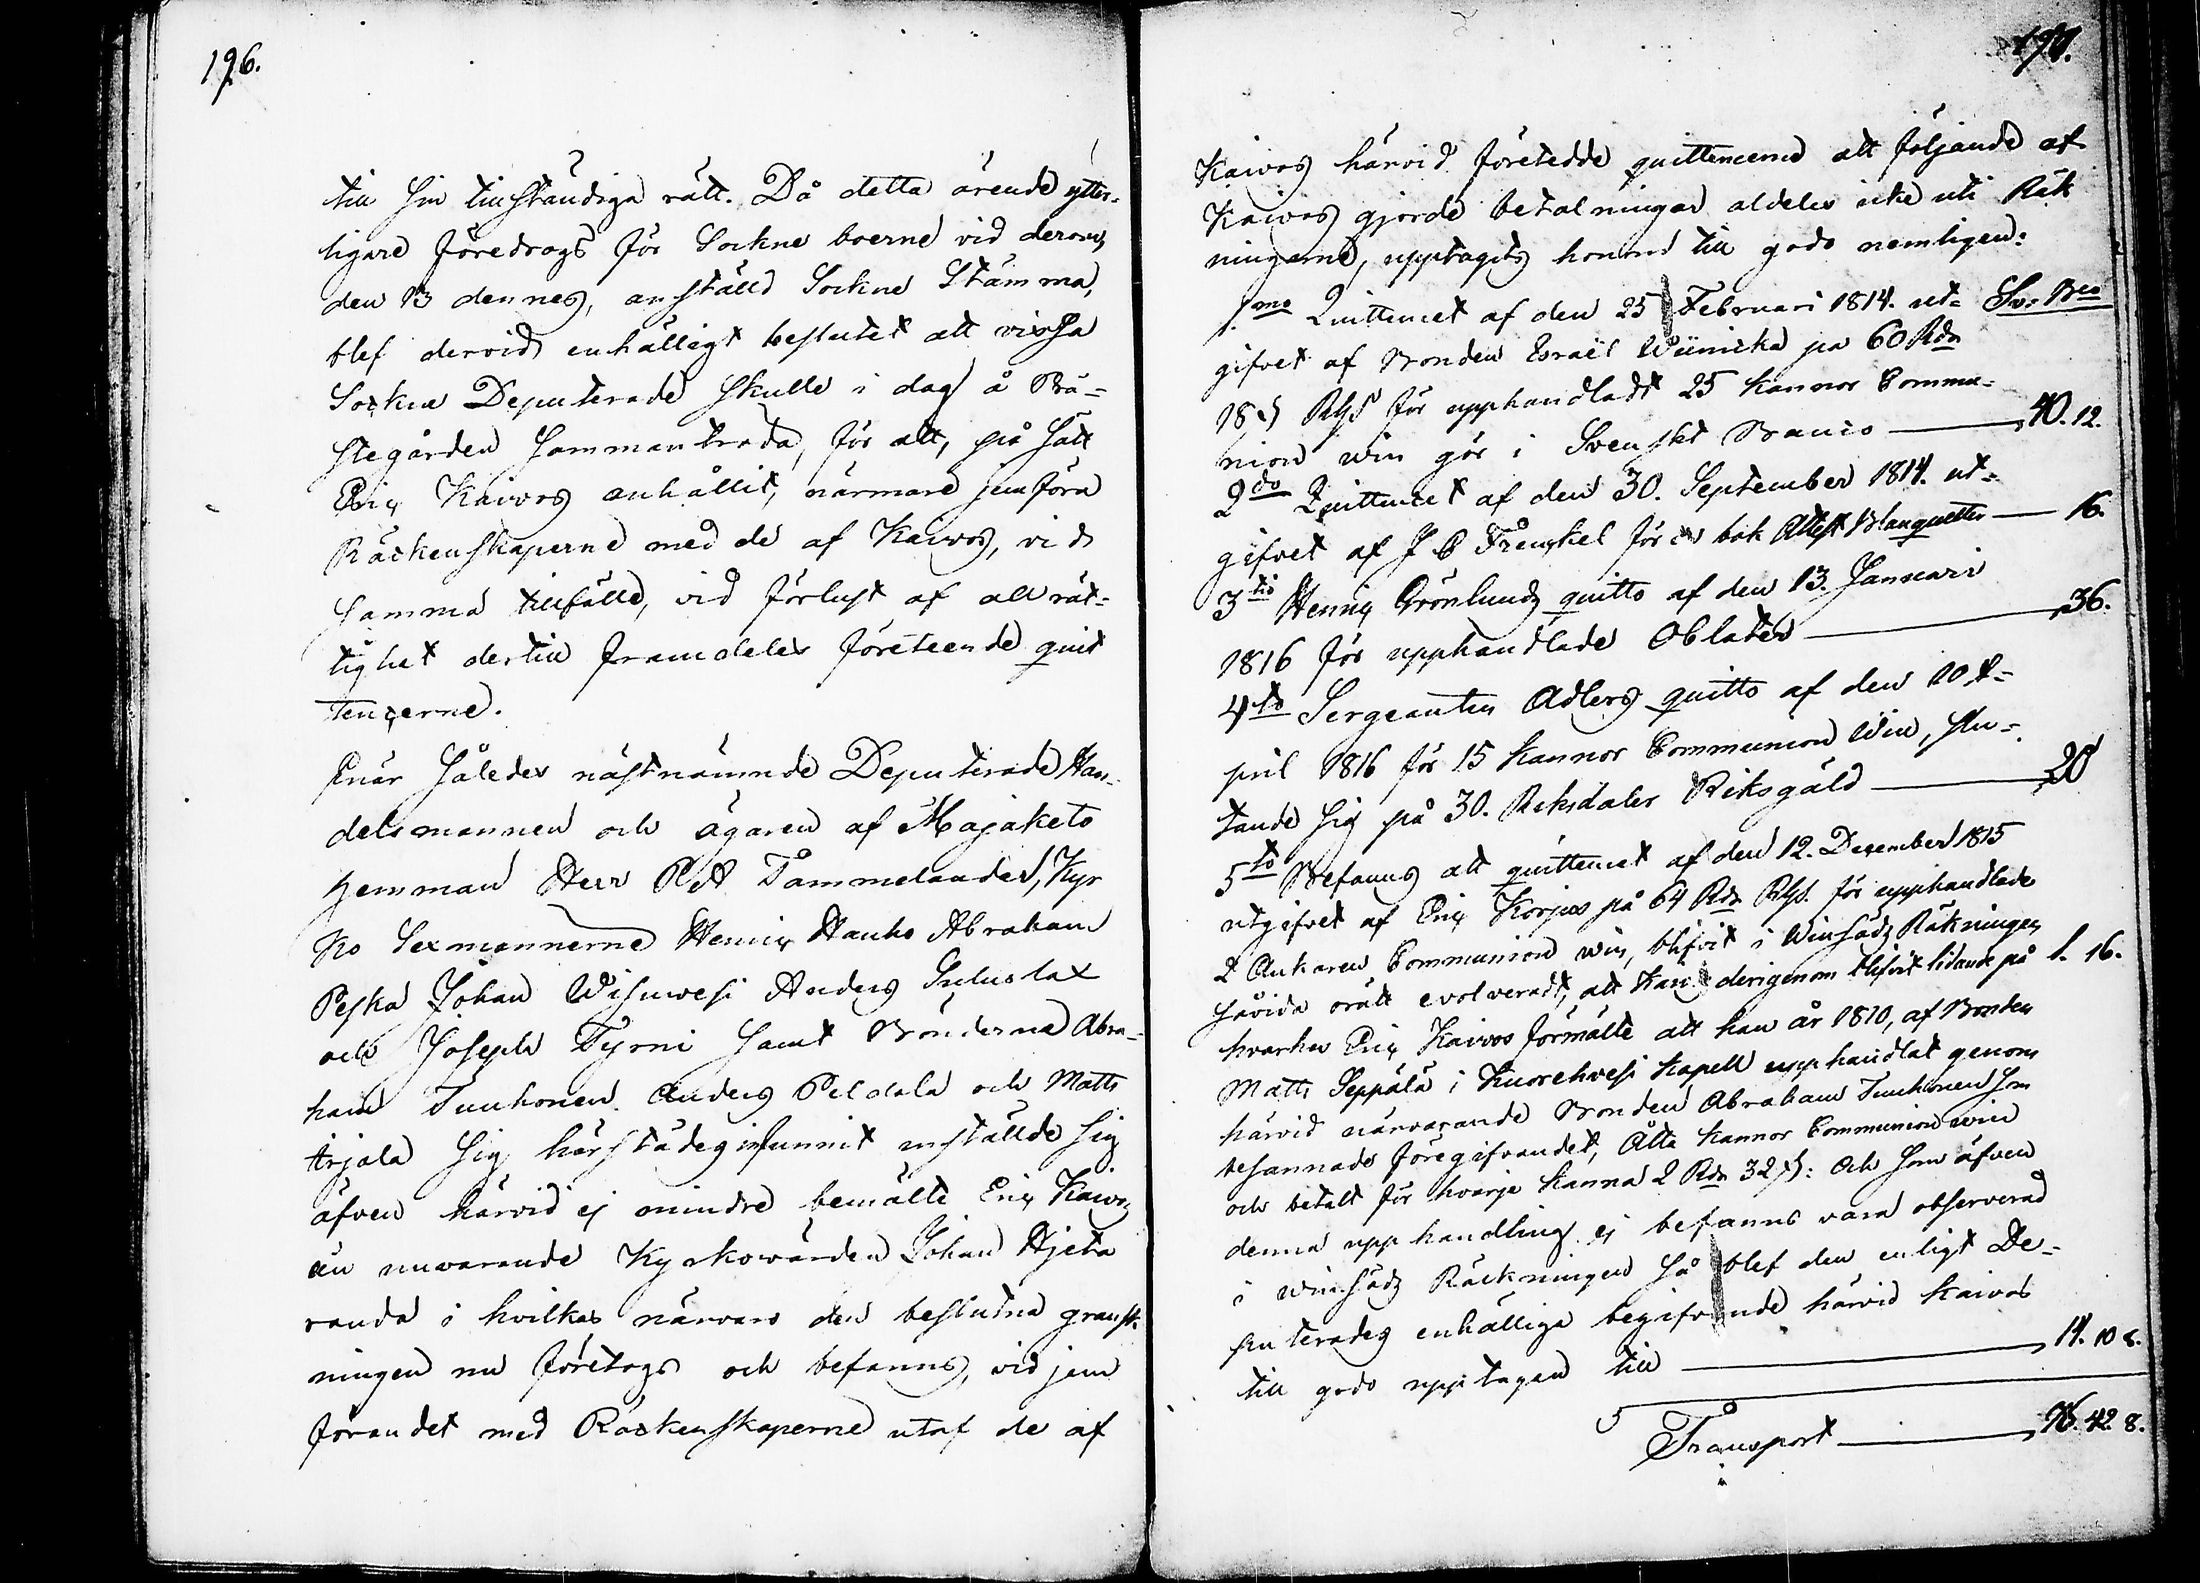 196.
till sin tillständiga rätt. Då detta ärende ytter-
ligare föredrogs för Sockne boerne vid derom
den 13 dennes, anställd Sockne Stämma,
blef dervid enhälligt beslutet att vissa
Sockne Deputerade skulle i dag å Prä-
stegården sammanträda, för att, på sätt
Eric Kaivos anhållit, närmare jemföra
Räckenskaperne med de af Kaivos, vid
samma tillfälle, vid förlust af all rät-
tighet dertill framdeles företeende quit
tencerne.
Enär således nästnämnde Deputerade Han-
delsmannen och ägaren af Majaketo
hemman Herr Pet Tammelander, Kyr
ko Sexmannerne Henric Hauho Abraham
Peska Johan Wisuwesi Anders
och Joseph Tyrni samt Bönderne Abra-
ham Tuuhonen Anders Peldola och Matts
Arjala sig härstädes infunnit inställde sig
äfven härvid ej mindre bemälte Eric Kaivos
än nuvarande Kyrkowärden Johan Hjeta
randa i hvilkas närvaro den beslutna gransk
ningen nu företogs och befanns, vid jem
förandet med Räckenskaperne utaf de af
197.
Kaivos härvid företedde quittencerne att följande af
Kaivos gjorde betalningar aldeles icke uti Räk
ningarne, upptagits honom till godo nemligen:
1mo Quittencet af den 25 Februari 1814. ut- Sv: Bco
gifvet af Bonden Esraël Wiinicka på 60 Rdr
18 s RgS för upphandladt 25 kannor Commu-
nion win gör i Svenskt Banco 40. 12.
2do Quittencet af den 30. September 1814. ut-
gifvet af J C Frenckel för en bok Attest Blanquetter 16.
3tio Henric Grönlunds quitto af den 13. Januari
1816 för upphandlade Oblater 36.
4to Sergeanten Adlers quitto af den 10 A-
pril 1816 för 15 kannor Communion Win, slu-
tande sig på 30. Riksdaler Riksgäld 20
5to Befanns att quittencet af den 12. December 1815
utgifvet af Eric Korpos på 64 Rdr RgS. för upphandlade
2 Ankaren Communion win, blifvit i Winsäds Räkningen
såvida orätt evolveradt, att han derigenom blifvit lidande på 1. 16.
hvarhos Eric Kaivos förmälte att han år 1810, af Bonden
Matts Seppälä i Kuorehvesi Kapell upphandlat genom
härvid närvarande Bonden Abraham Tuuhonen som
besannade föregifvandet, Åtta kannor Communion win
och betalt för hvarje kanna 2 Rdr 32 s: Och som äfven
denna upphandling ej befanns vara observerad
i winsäds Räckningen så blef den enligt De-
puterades enhälliga begifvande härvid Kaivos
till godo upptagen till 14. 10 8.
Transport 76. 42 8.